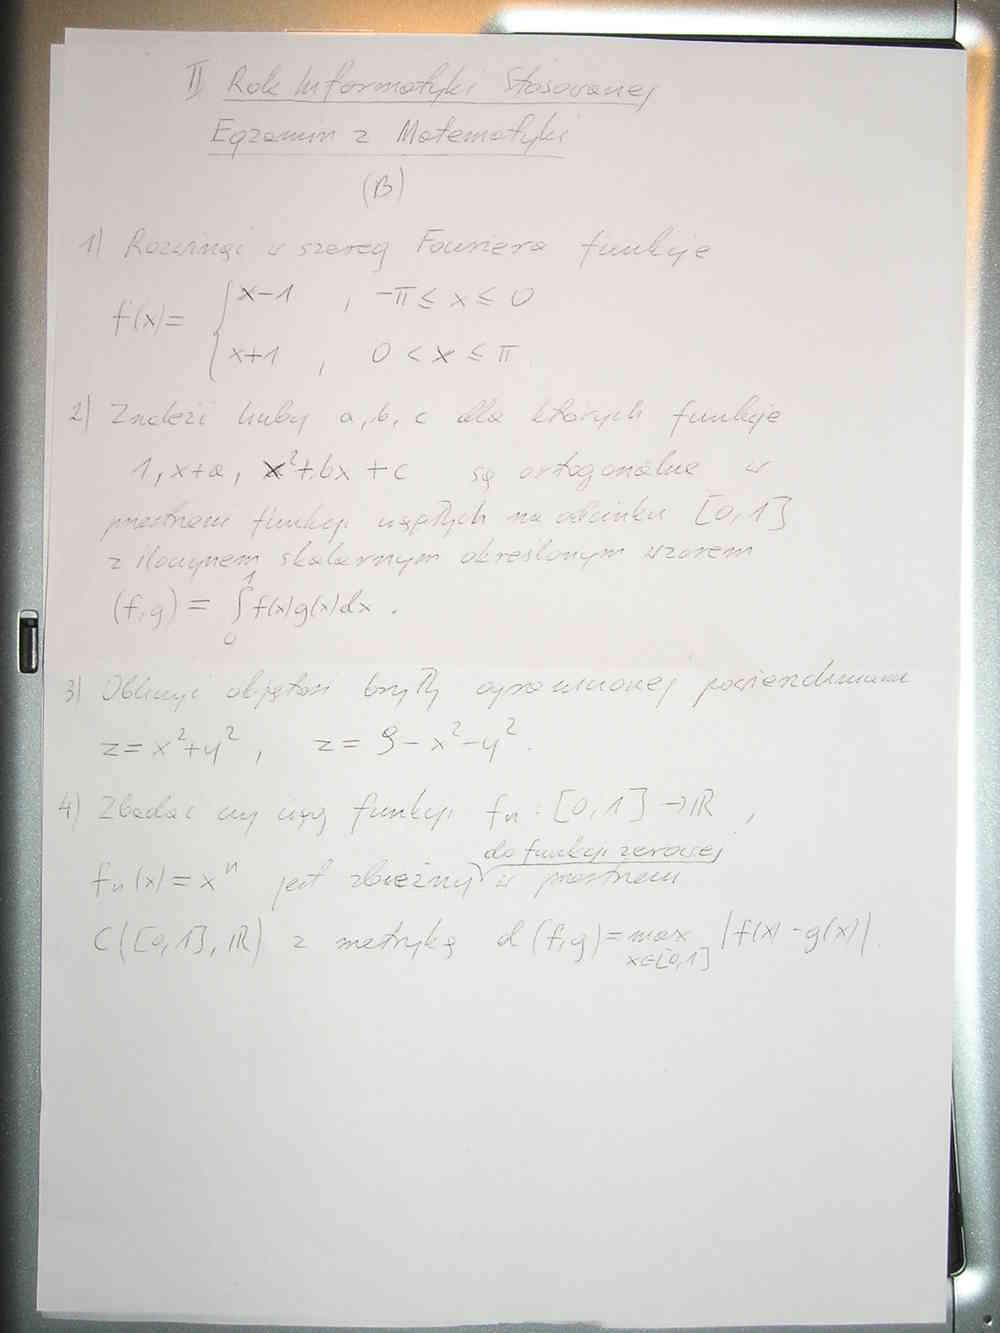 II Rok Informatyki Stosowanej
Egzamin z Matematyki
(B)
1) Rozwinąć w szereg Fouriera funkcję
f(x)= { x-1 , -π ≤ x ≤ 0
x+1 , 0 < x ≤ π
2) Znaleźć liczby a, b, c dla których funkcje
1, x+a, x²+bx+c są ortogonalne w
przestrzeni funkcji ciągłych na odcinku [0,1]
z iloczynem skalarnym określonym wzorem
(f,g) = ∫₀¹ f(x)g(x)dx .
3) Obliczyć objętość bryły ograniczonej powierzchniami
z = x²+y² , z = 9-x²-y² .
4) Zbadać czy ciąg funkcji fn : [0,1] → ℝ ,
do funkcji zerowej
fn(x) = xⁿ jest zbieżny w przestrzeni
C([0,1], ℝ) z metryką d(f,g) = max |f(x)-g(x)|.
x∈[0,1]